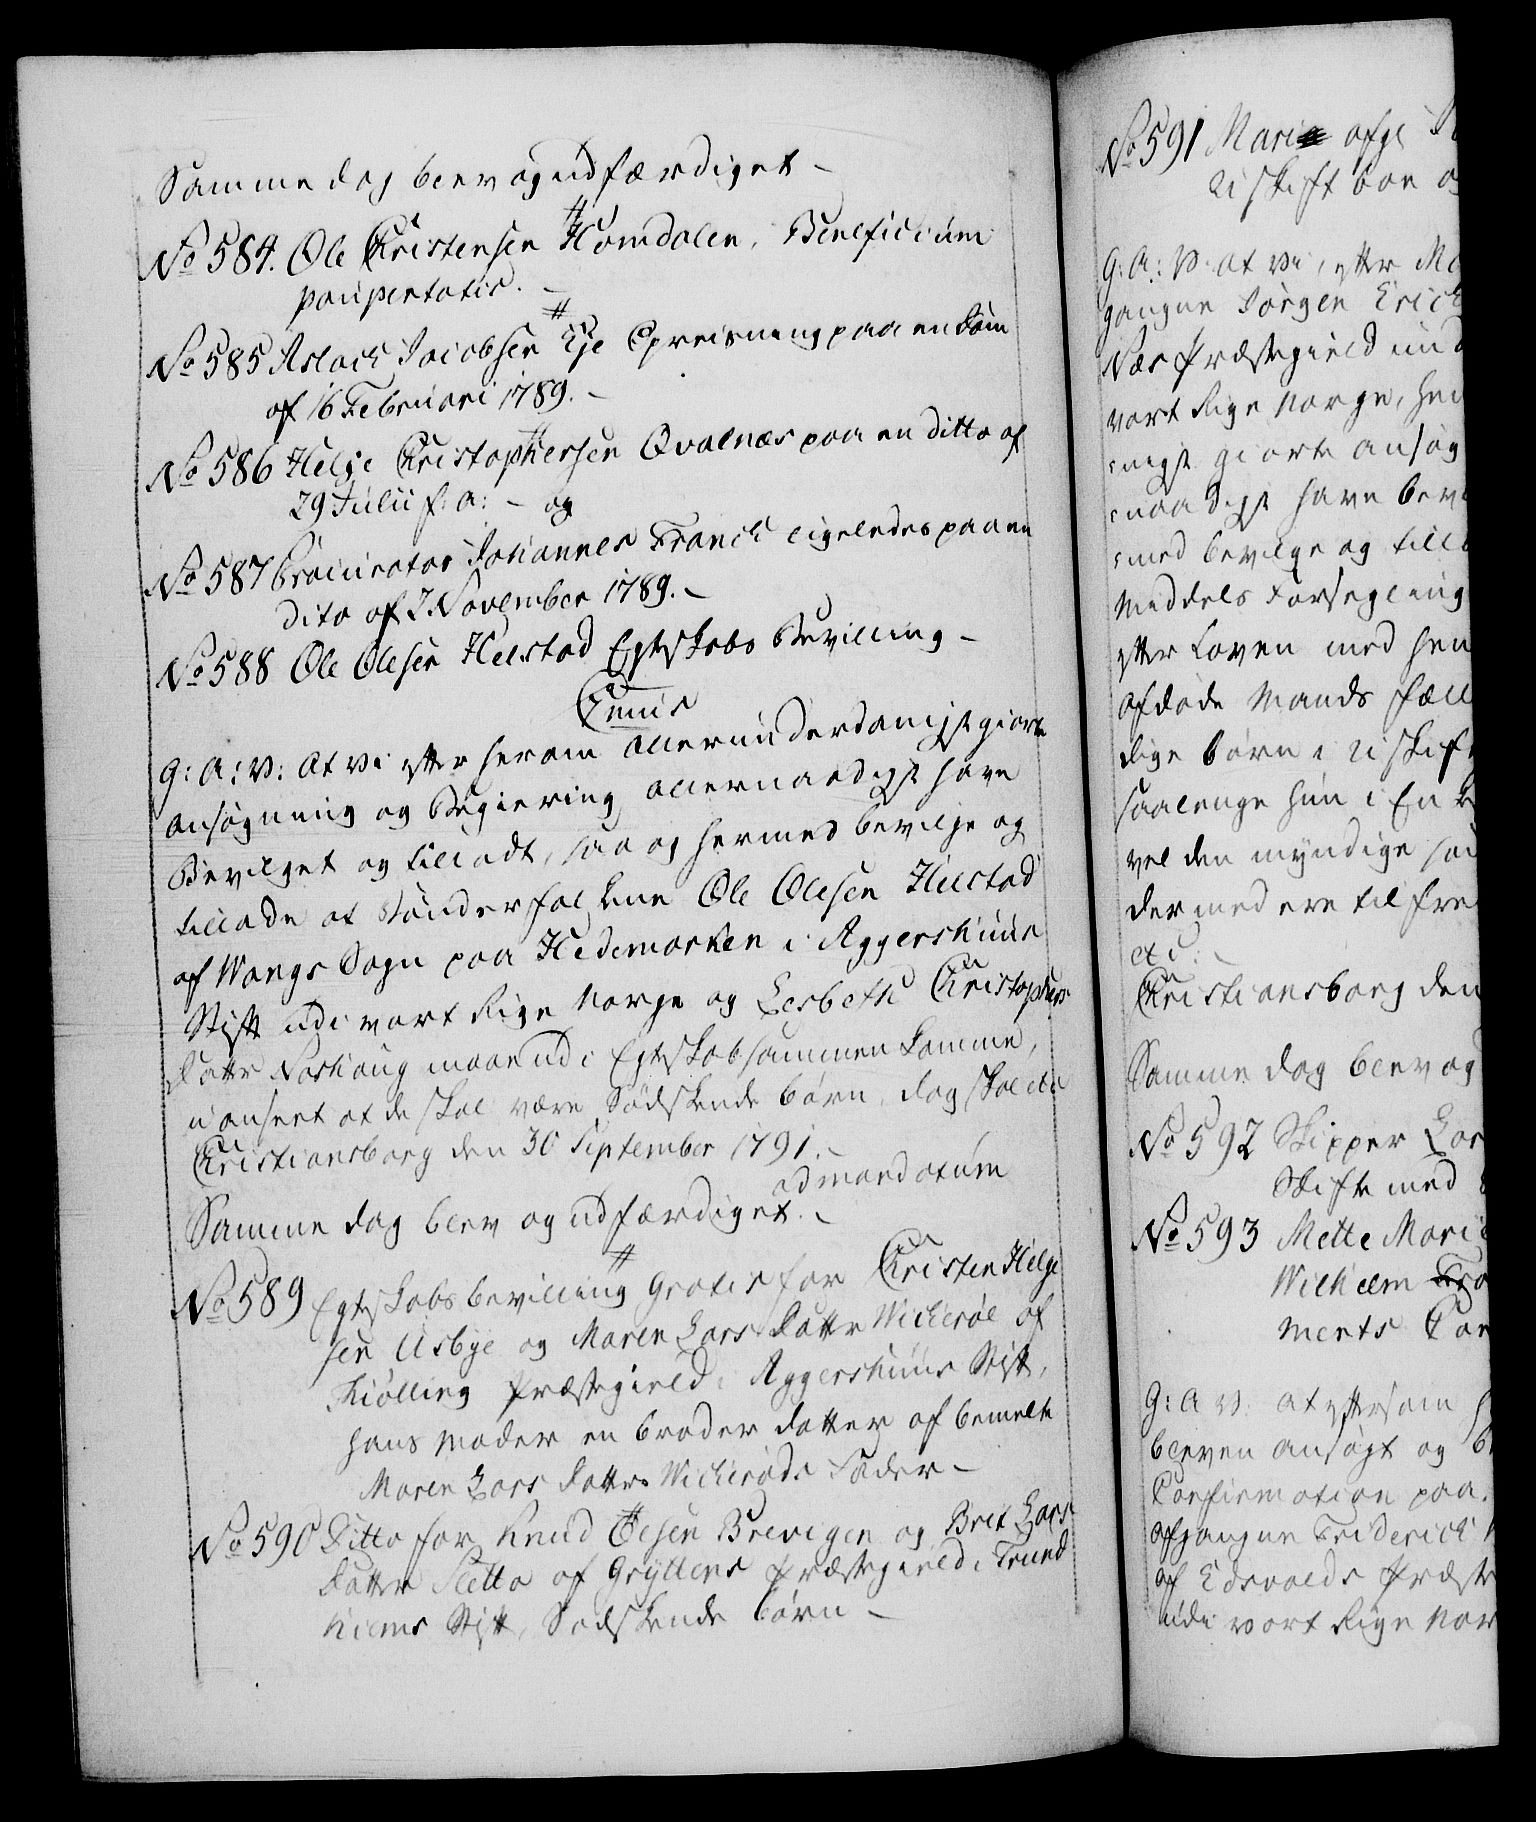 Samme dag blev og udfærdiget –
No 584. Ole Christensen Homdalen, Beneficium
paupertatis. –
No 585 Aslach Jacobsen Eje Opreisning paa en Dom
af 16 Februari 1789. –
No 586 Helge Christophersen Qvalnæs paa en ditto af
29 Julii s: a: – og
No 587 Procurator Johannes Franch ligeledes paa en
dito af 7 November 1789. –
No 588 Ole Olesen Helstad Egteskabs Bevilling –
Cunis
G: A: V: at vi efter herom allerunderdanigst giorte
ansøgning og Begiering allernaadigst have
Bevilget og tilladt, saa og hermed bevilge og
tillade at Bønderfolkene Ole Olesen Hilstad
af Wangs Sogn paa Hedemarken i Aggershuus
Stift udi vort Rige Norge og Lisbeth Christophers
datter Noshaug maae udi Egteskab sammenkomme,
uanseet at de skal være Sødskende børn, dog skal etc
Christiansborg den 30 September 1791. –
ad mandatum
Samme dag blev og udfærdiget. –
No 589 Egteskabs bevilling Gratis for Christen Helge
sen Usbye og Maren Lars datter Wickerøe af
Kiølling Præstegield i Aggershuus Stift,
hans moder en broder datter af bemelte
Maren Lars datters Wickerøds Fader –
No 590 Ditto for Knud Olsen Brevigen og Brit Lars
datter Sletta af Gryttens Præstegield i Trund
hiems Stift, Sødskende børn –
No 591 Marie afg
uskift boe
G: A: V: at vi, efter
gangne Jørgen Erich
Næs Præstegield
vort Rige Norge,
nigst giorte ansøg
naadigst have bev
med bevilge og till
Meddels Forsegling
efter Loven med hen
Afdøde Mands fæll
dige børn i uskif
saalænge hun i En
vel den myndige
dermed ere tilfre
etc. –
Christiansborg den
Samme dag blev og
No 592 Skipper Lar
Skifte med
No 593 Mette Mari
Wilhelm
ments Con
G: A: V: at eftersom
bleven ansøgt og
Confirmation paa
afgangne Friderich
af Edsvolds Præste
udi vort Rige Nor